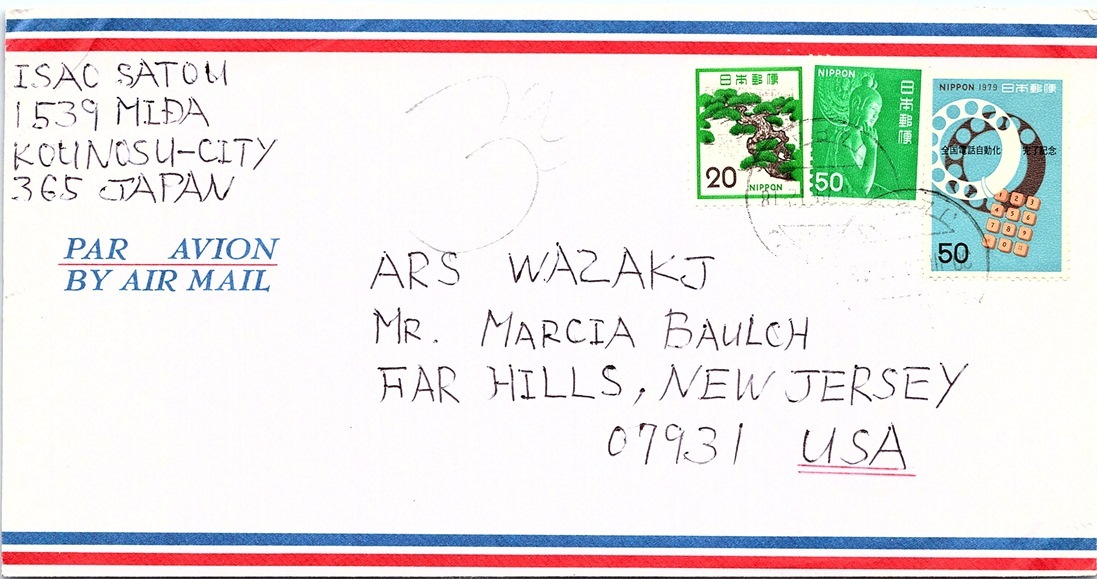 ISAO SATOU
1539 MIDA
KOUNOSU-CITY
365 JAPAN
PAR AVION
BY AIR MAIL
日本郵便
20
NIPPON
NIPPON
日本郵便
50
NIPPON 1979 日本郵便
全国電話自動化 完了記念
1 2 3
4 5 6
7 8 9
0
50
ARS WAZAKJ
MR. MARCIA BAULCH
FAR HILLS, NEW JERSEY
07931 USA